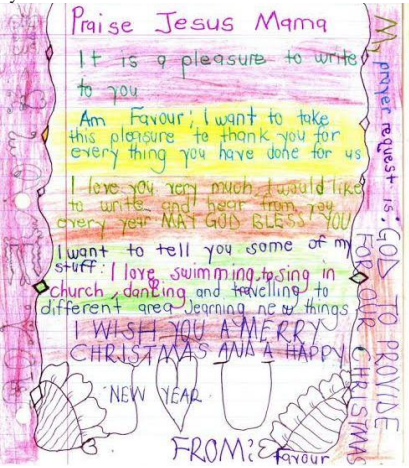 Praise Jesus Mama
It is a pleasure to write
to you
Am Favour; I want to take
this pleasure to thank you for
every thing you have done for us
I love you very much, I would like
to write and hear from you
every year MAY GOD BLESS YOU
I want to tell you some of my
stuff: I love, swimming, to sing in
church, dancing and travelling to
different area learning new things
I WISH YOU A MERRY
CHRISTMAS AND A HAPPY
NEW YEAR
FROM: favour
My prayer request is; GOD TO PROVIDE
FOR OUR CHRISTMAS